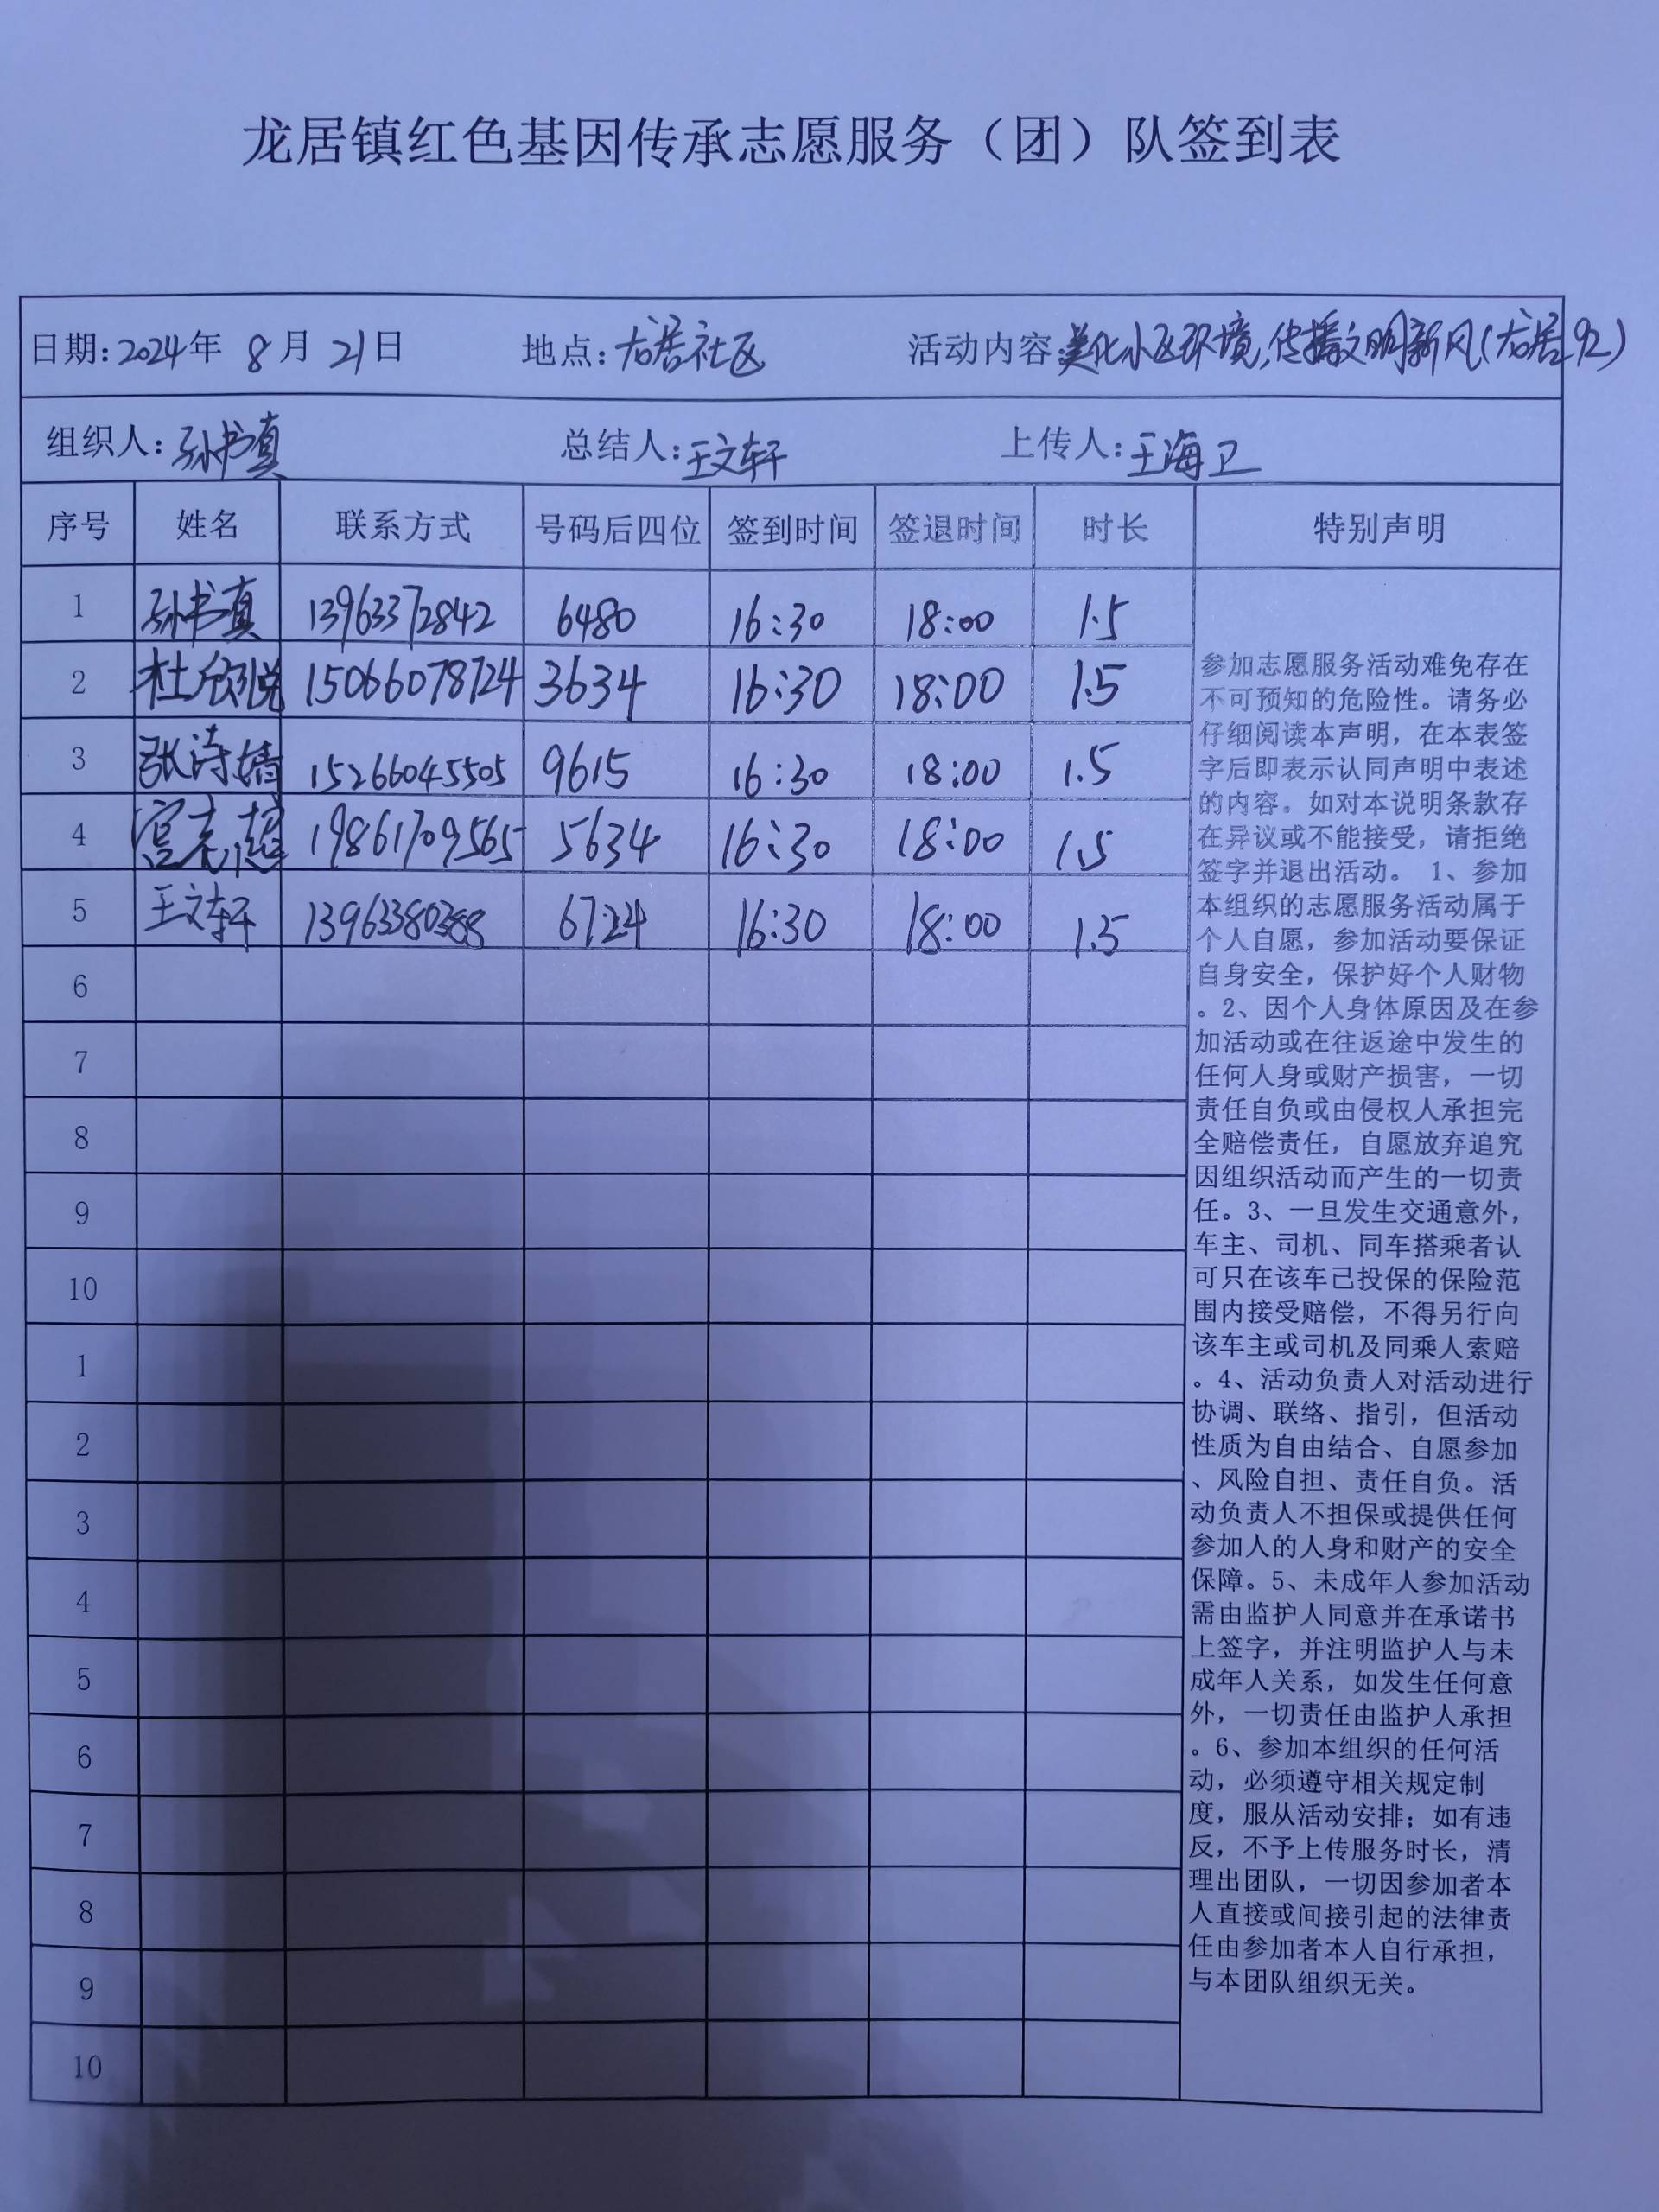 龙居镇红色基因传承志愿服务（团）队签到表
日期:2024年 8月21日 地点:龙居社区 活动内容:美化小区环境,传播文明新风(龙居92)
组织人:孙书真 总结人:王文轩 上传人:王海卫
序号 姓名 联系方式 号码后四位 签到时间 签退时间 时长 特别声明
1 孙书真 13963372842 6480 16:30 18:00 1.5
2 杜欣悦 15066078724 3634 16:30 18:00 1.5
3 张诗婧 15266045505 9615 16:30 18:00 1.5
4 宫志超 19861709565 5634 16:30 18:00 1.5
5 王文轩 13963380388 6724 16:30 18:00 1.5
6
7
8
9
10
1
2
3
4
5
6
7
8
9
10
参加志愿服务活动难免存在
不可预知的危险性。请务必
仔细阅读本声明，在本表签
字后即表示认同声明中表述
的内容。如对本说明条款存
在异议或不能接受，请拒绝
签字并退出活动。 1、参加
本组织的志愿服务活动属于
个人自愿，参加活动要保证
自身安全，保护好个人财物
。2、因个人身体原因及在参
加活动或在往返途中发生的
任何人身或财产损害，一切
责任自负或由侵权人承担完
全赔偿责任，自愿放弃追究
因组织活动而产生的一切责
任。3、一旦发生交通意外，
车主、司机、同车搭乘者认
可只在该车已投保的保险范
围内接受赔偿，不得另行向
该车主或司机及同乘人索赔
。4、活动负责人对活动进行
协调、联络、指引，但活动
性质为自由结合、自愿参加
、风险自担、责任自负。活
动负责人不担保或提供任何
参加人的人身和财产的安全
保障。5、未成年人参加活动
需由监护人同意并在承诺书
上签字，并注明监护人与未
成年人关系，如发生任何意
外，一切责任由监护人承担
。6、参加本组织的任何活
动，必须遵守相关规定制
度，服从活动安排；如有违
反，不予上传服务时长，清
理出团队，一切因参加者本
人直接或间接引起的法律责
任由参加者本人自行承担，
与本团队组织无关。